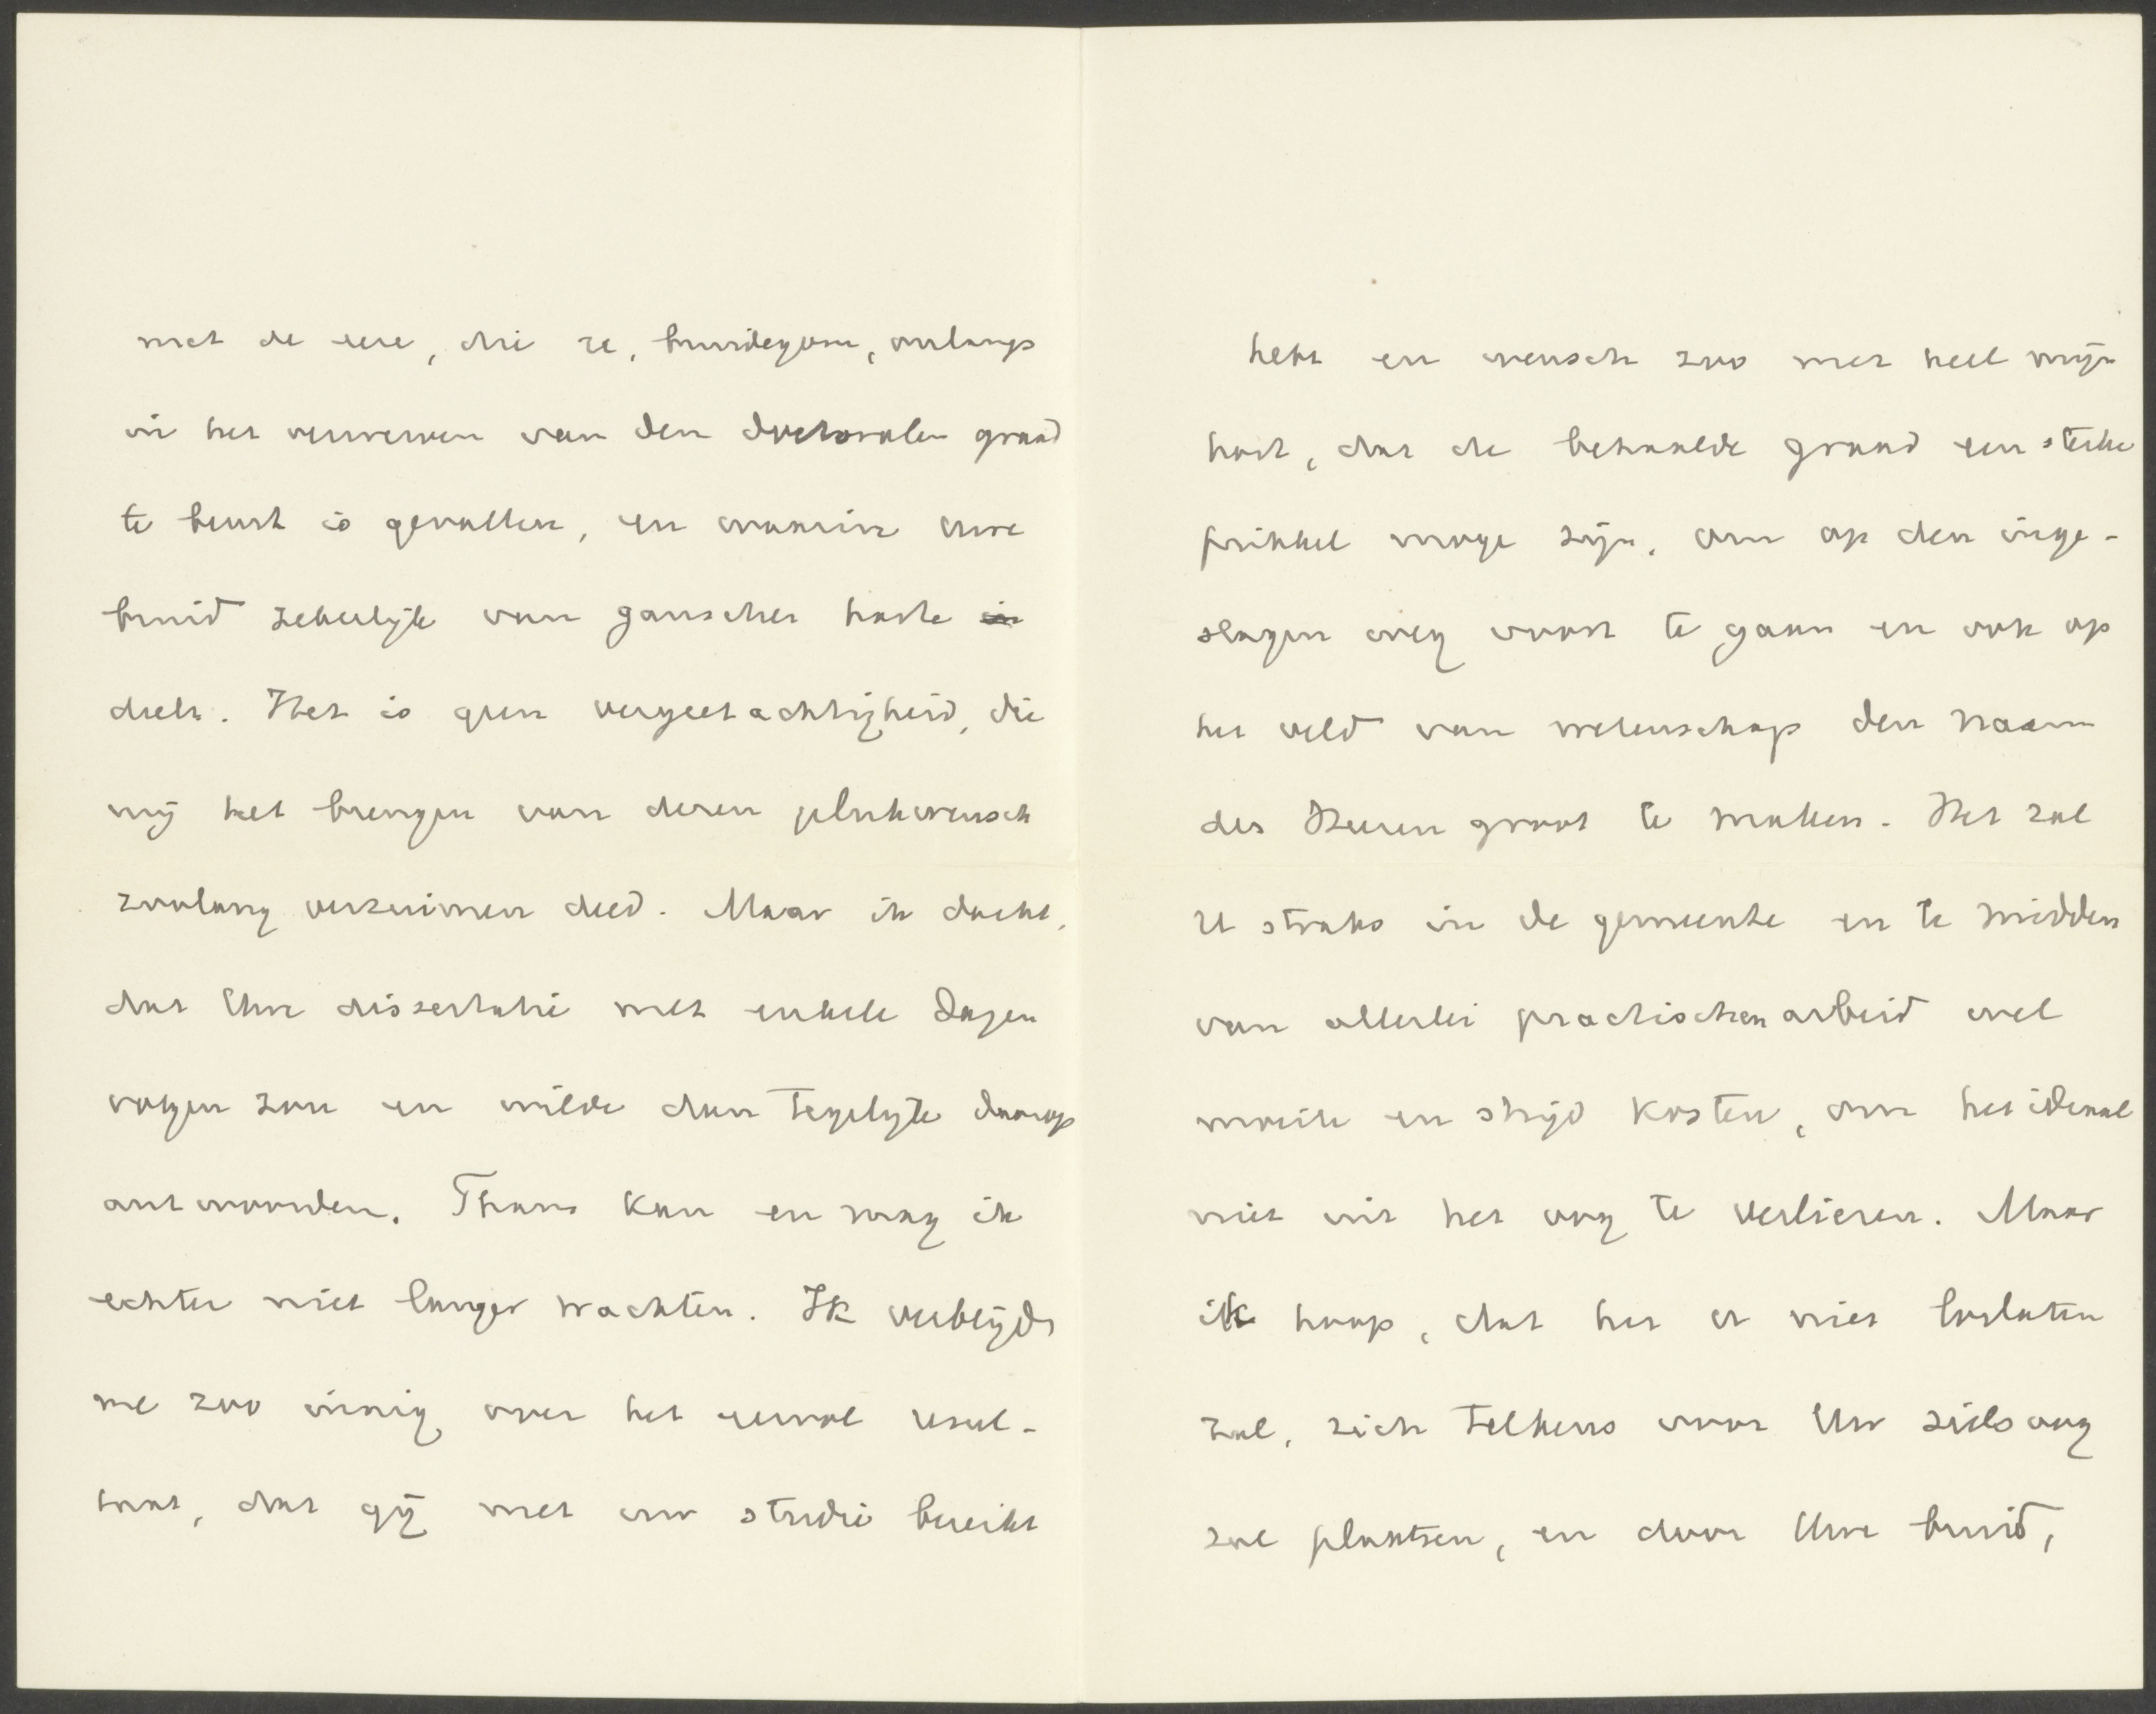 met de eere, die U, bruidegom, onlangs
in het verwerven van den doctoralen graad
te beurt is gevallen, en waarin Uwe
bruid zekerlijk van ganscher harte in
deelt. Het is geen vergeetachtigheid, die
mij het brengen van dezen gelukwensch
zoolang verzuimen deed. Maar ik dacht,
dat Uwe dissertatie met enkele dagen
volgen zou en wilde dan tegelijk daarop
antwoorden. Thans kan en mag ik
echter niet langer wachten. Ik verblijd
me zoo innig over het eervol resul-
taat, dat gij met uw studie bereikt
hebt en wensch zoo met heel mijn
hart, dat de behaalde graad een sterke
prikkel moge zijn, om op den inge-
slagen weg voort te gaan en ook op
het veld van wetenschap den naam
des Heeren groot te maken. Het zal
U straks in de gemeente en te midden
van allerlei practischen arbeid wel
moeite en strijd kosten, om het ideaal
niet uit het oog te verliezen. Maar
ik hoop, dat het U niet loslaten
zal, zich telkens voor Uw zielsoog
zal plaatsen, en door Uwe bruid,